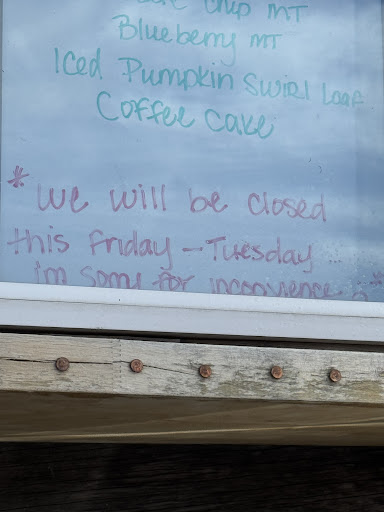 Chip MT
Blueberry MT
Iced Pumpkin Swirl Loaf
Coffee Cake
* We will be closed
this Friday - Tuesday
im sorry for inconvience :( *